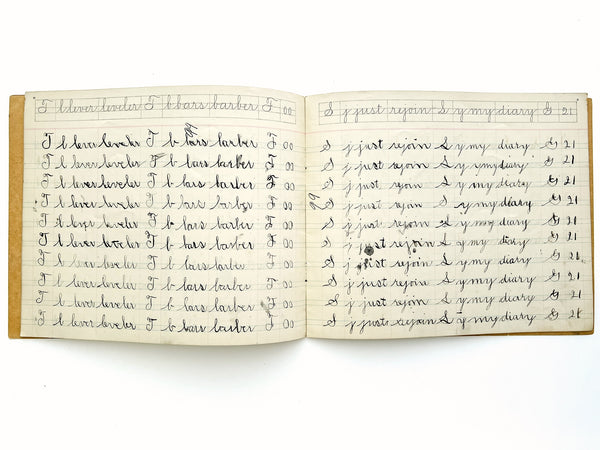 T l lever leveler T b bars barber T 00
T l lever leveler T b bars barber T 00
T l lever leveler T b bars barber T 00
T l lever leveler T b bars barber T 00
T l lever leveler T b bars barber T 00
T l lever leveler T b bars barber T 00
T l lever leveler T b bars barber T 00
T l lever leveler T b bars barber T 00
T l lever leveler T b bars barber T 00
T l lever leveler T b bars barber T 00
T l lever leveler T b bars barber T 00
S j just rejoin S y my diary G 21
S j just rejoin S y my diary G 21
S j just rejoin S y my diary G 21
S j just rejoin S y my diary G 21
S j just rejoin S y my diary G 21
S j just rejoin S y my diary G 21
S j just rejoin S y my diary G 21
S j just rejoin S y my diary G 21
S j just rejoin S y my diary G 21
S j just rejoin S y my diary G 21
S j just rejoin S y my diary G 21